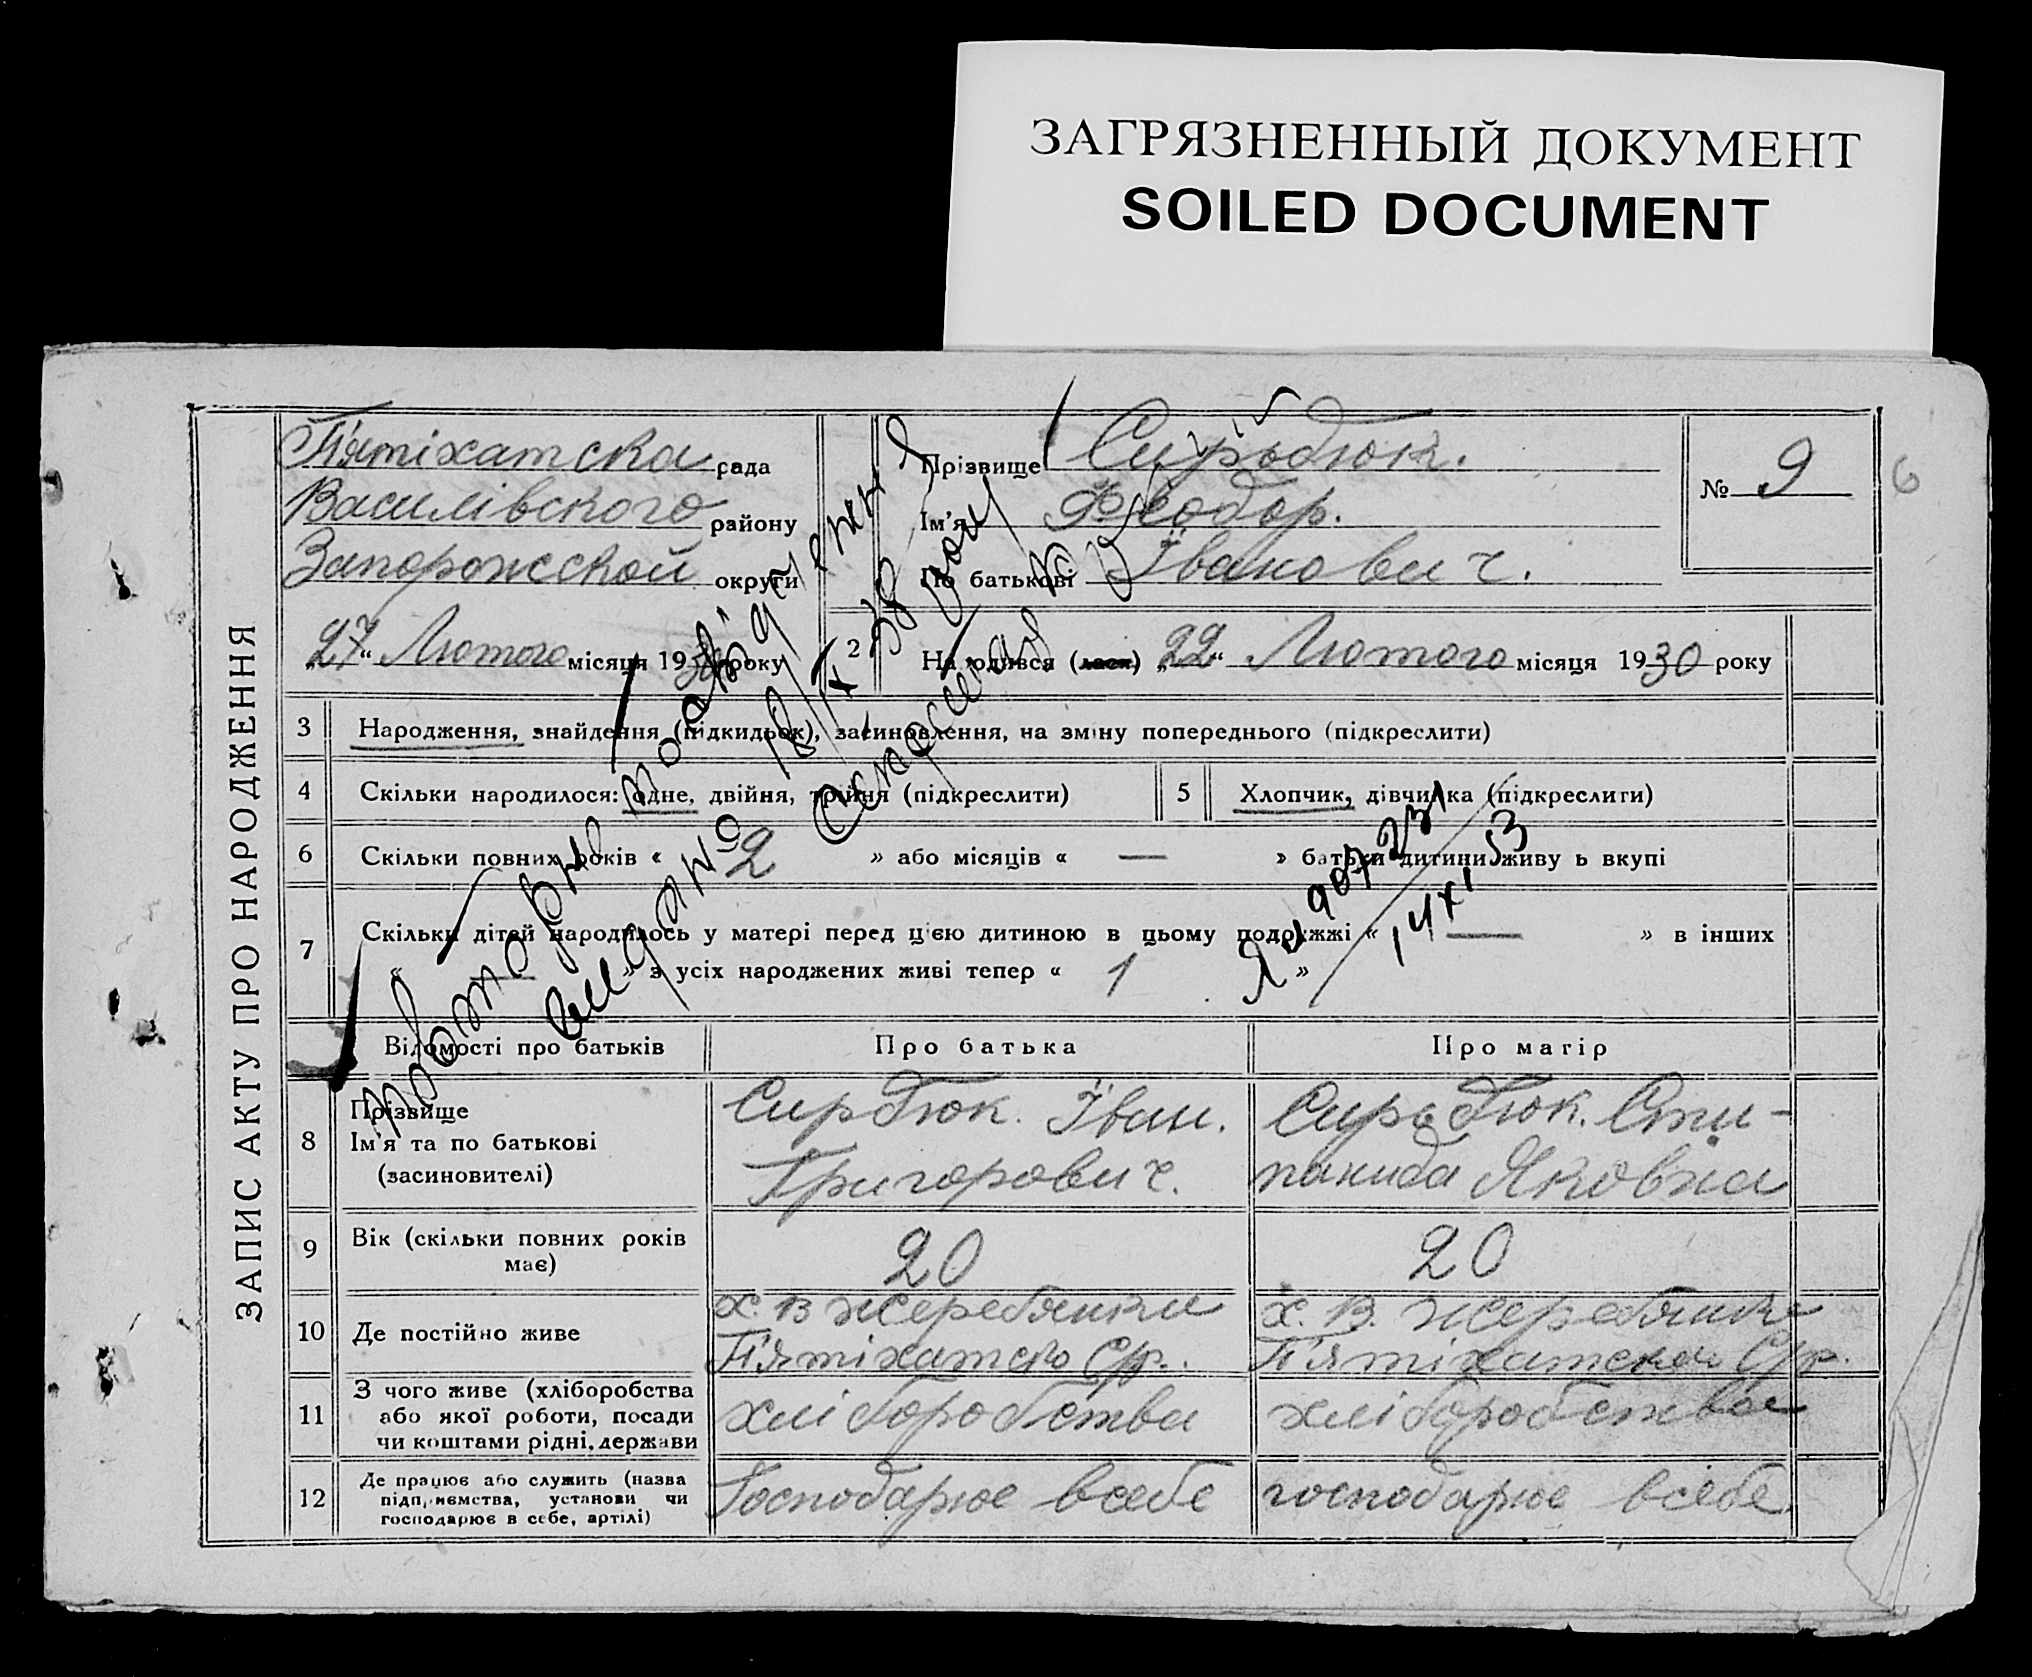 ЗАГРЯЗНЕННЫЙ ДОКУМЕНТ
SOILED DOCUMENT
ЗАПИС АКТУ ПРО НАРОДЖЕННЯ
П'ятіхатска рада
Василівского району
Запорожской округи
„27“ Лютого місяця 1930 року
Прізвище Сирьбюк.
Ім'я Феодор.
По батькові Іванович.
№ 9
6
2 Народився (лася) „22“ Лютого місяця 1930 року
3 Народження, знайдення (підкидьок), засиновлення, на зміну попереднього (підкреслити)
4 Скільки народилося: одне, двійня, трійня (підкреслити)
5 Хлопчик, дівчинка (підкреслити)
6 Скільки повних років « 2 » або місяців « — » батьки дитини живу ь вкупі
7 Скільки дітей народилось у матері перед цією дитиною в цьому подружжі « — » в інших
« — » з усіх народжених живі тепер « 1 »
повторно посвідчення
видано 18/IX 38 року
Яц 907231
14 XI 53
Відомості про батьків Про батька Про матір
8 Прізвище
Ім'я та по батькові
(засиновителі)
Сирбюк. Іван.
Григорович.
Сирьбюк. Сти-
панида Яковна
9 Вік (скільки повних років
має)
20
20
10 Де постійно живе
х. В Жеребянки
П'ятіхатско С/р.
х. В. Жеребянки
П'ятіхатской С/р.
11 З чого живе (хліборобства
або якої роботи, посади
чи коштами рідні, держави
хліборобства
хліборобства
12 Де працює або служить (назва
підприємства, установи чи
господарює в себе, артілі)
Господарює всебе
господарює всебе